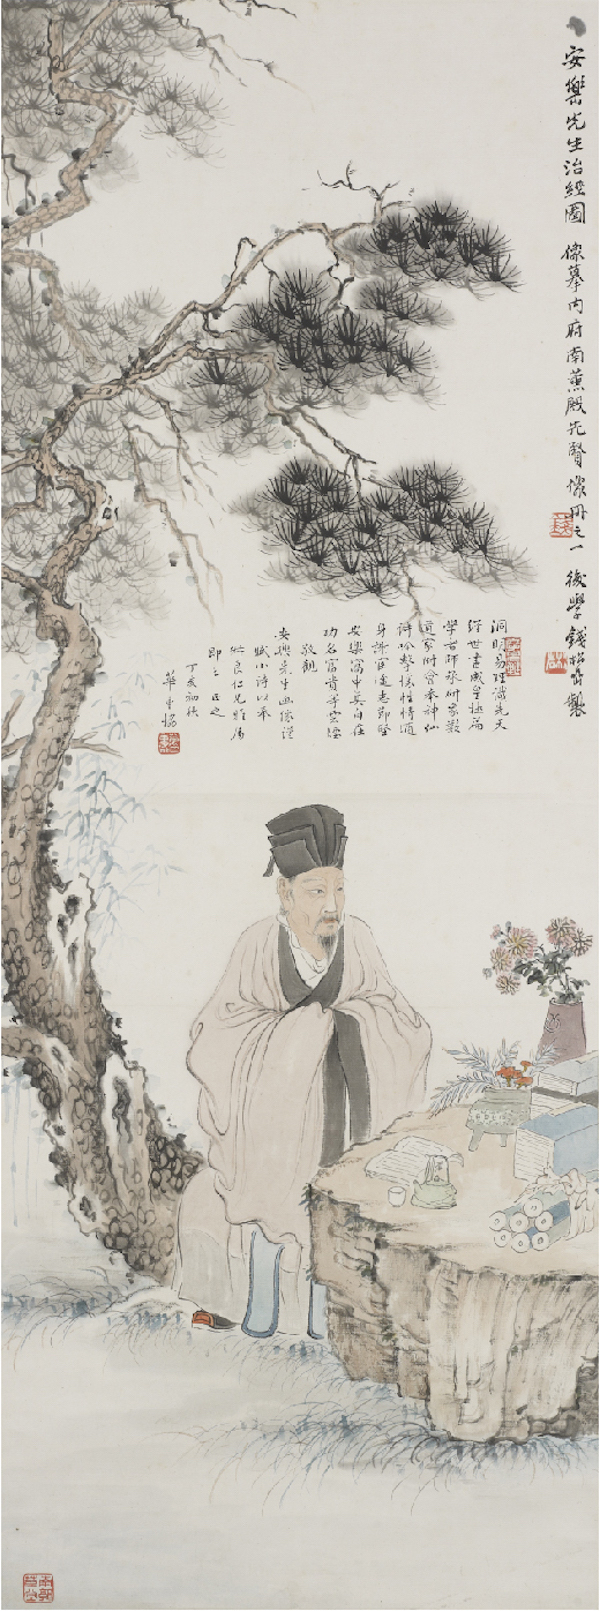 安樂先生治經圖 像摹内府南薰殿先賢像冊之一 後學錢松嵒製
洞明易理識先天
經世書成皇極篇
學古師承研象數
道家附會本神仙
詩吟擊攘性情適
身謝官達志節堅
安樂窩中真自在
功名富貴等雲煙
敬觀
安樂先生画像謹
賦小詩以奉
良仁兄雅屬
即乞正之
丁亥初秋
華